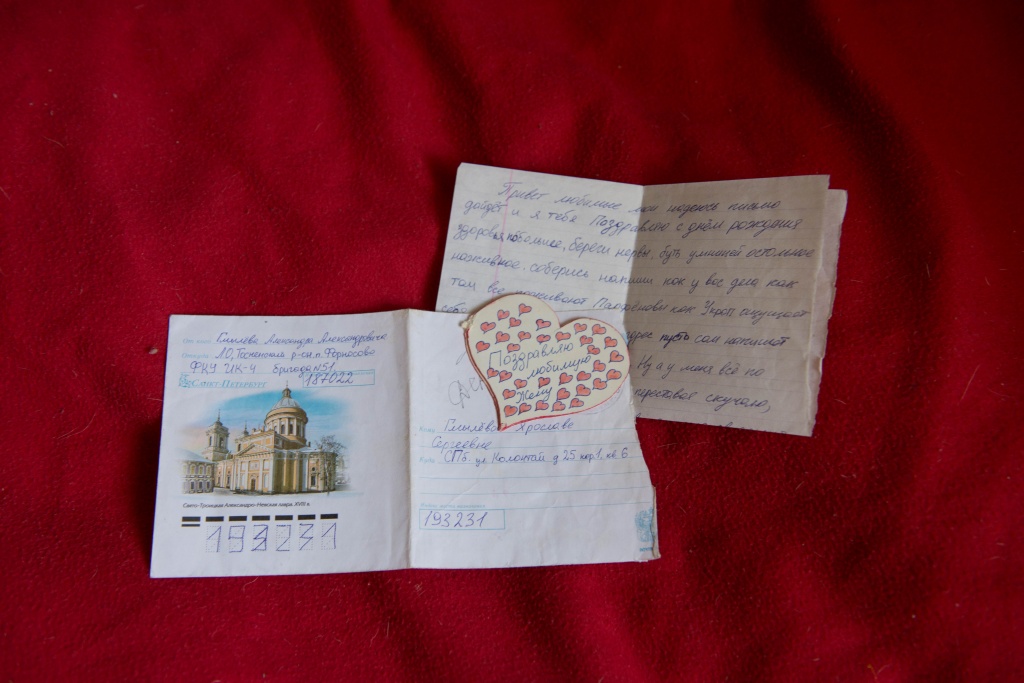 Привет любимые мои надеюсь письмо
дойдёт и я тебя Поздравляю с днём рождения
здоровья побольше, береги нервы, будь умницей остальное
наживное, соберись напиши как у вас дела как
там все поживают как Укроп ощущает
пусть сам
Ну а у меня всё по
скучаю,
Поздравляю
любимую
Жену
От кого Александра Александровича
Откуда ЛО, Тосненский р-он. п. Форносово
ФКУ ИК-4 бригада №51
Санкт-Петербург 187022
Свято-Троицкая Александро-Невская лавра. XVIII в.
193231
Кому
Сергеевне
Куда СПб. ул Колонтай д 25 кор1, кв 6
193231